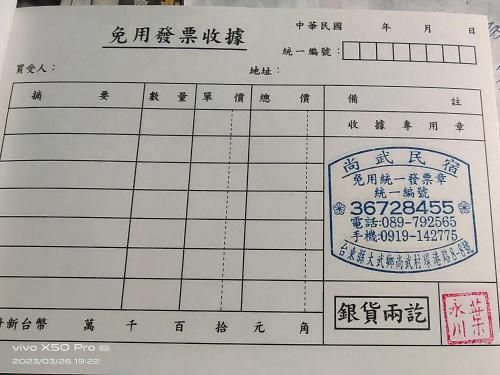 中華民國 年 月 日
免用發票收據
統一編號:
買受人: 地址:
摘 要 數 量 單 價 總 價 備 註
收據專用章
尚武民宿
免用統一發票章
統一編號
36728455
電話:089-792565
手機:0919-142775
台東縣大武鄉尚武村環港路8-8號
新台幣 萬 千 百 拾 元 角
銀貨兩訖
葉永川
vivo X50 Pro
2023/03/26 19:22